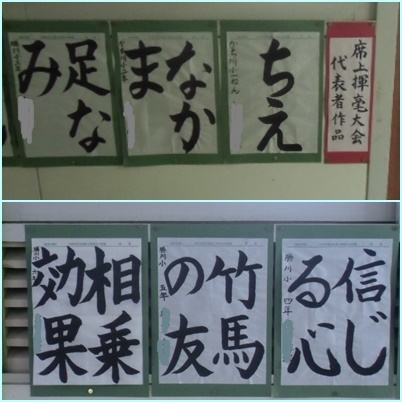 席上揮毫大会
代表者作品
ちえ
かち川小一ねん
なか
ま
足な
み
信じ
る心
勝川小 四年
竹馬
の友
勝川小 五年
相乗
効果
勝川小 六年